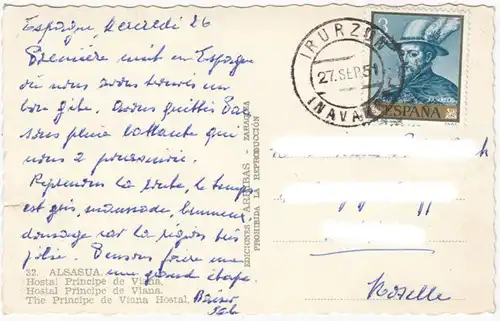 Espagne, Mercredi 26
Première nuit en Espagne
où nous avons trouvé un
bon gîte. Avons quitté
sous pluie battante qui
nous a poursuivi.
Reprenons la route, le temps
est gris, maussade, brumeux,
dommage car la région très
jolie. Pensons faire
une grande étape.
32. ALSASUA.
Hostal Príncipe de Viana.
Hostal Príncipe de Viana.
The Príncipe de Viana Hostal.
EDICIONES ARRIBAS - ZARAGOZA
PROHIBIDA LA REPRODUCCIÓN
IRURZUN
27.SEP.
(NAVA
3
ESPAÑA
Moselle